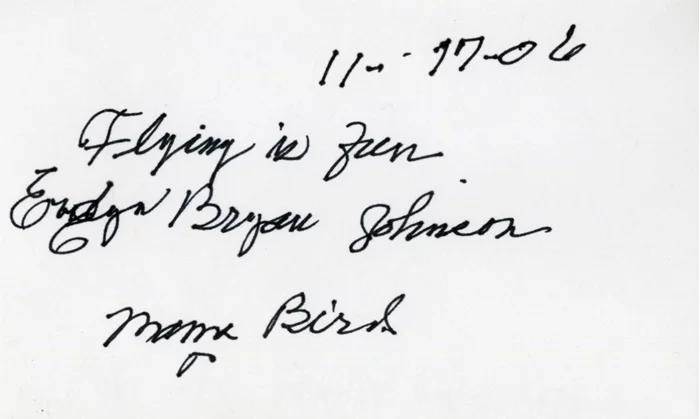 11-17-06
Flying is fun
Evelyn Bryan Johnson
Mama Bird